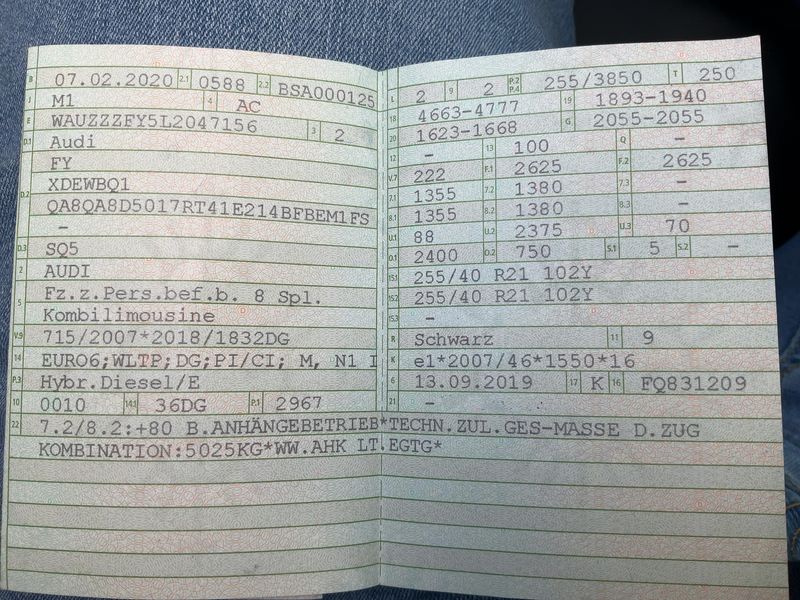 B 07.02.2020 2.1 0588 2.2 BSA000125
J M1 4 AC
E WAUZZZFY5L2047156 3 2
D.1 Audi
FY
D.2 XDEWBQ1
QA8QA8D5017RT41E214BFBEM1FS
–
D.3 SQ5
2 AUDI
5 Fz.z.Pers.bef.b. 8 Spl.
Kombilimousine
V.9 715/2007*2018/1832DG
14 EURO6;WLTP;DG;PI/CI; M, N1 I
P.3 Hybr.Diesel/E
10 0010 14.1 36DG P.1 2967
L 2 9 2 P.2 P.4 255/3850 T 250
18 4663-4777 19 1893-1940
20 1623-1668 G 2055-2055
12 – 13 100 Q –
V.7 222 F.1 2625 F.2 2625
7.1 1355 7.2 1380 7.3 –
8.1 1355 8.2 1380 8.3 –
U.1 88 U.2 2375 U.3 70
O.1 2400 O.2 750 S.1 5 S.2 –
15.1 255/40 R21 102Y
15.2 255/40 R21 102Y
15.3 –
R Schwarz 11 9
K e1*2007/46*1550*16
6 13.09.2019 17 K 16 FQ831209
21 –
22 7.2/8.2:+80 B.ANHÄNGEBETRIEB*TECHN.ZUL.GES-MASSE D.ZUG
KOMBINATION:5025KG*WW.AHK LT.EGTG*